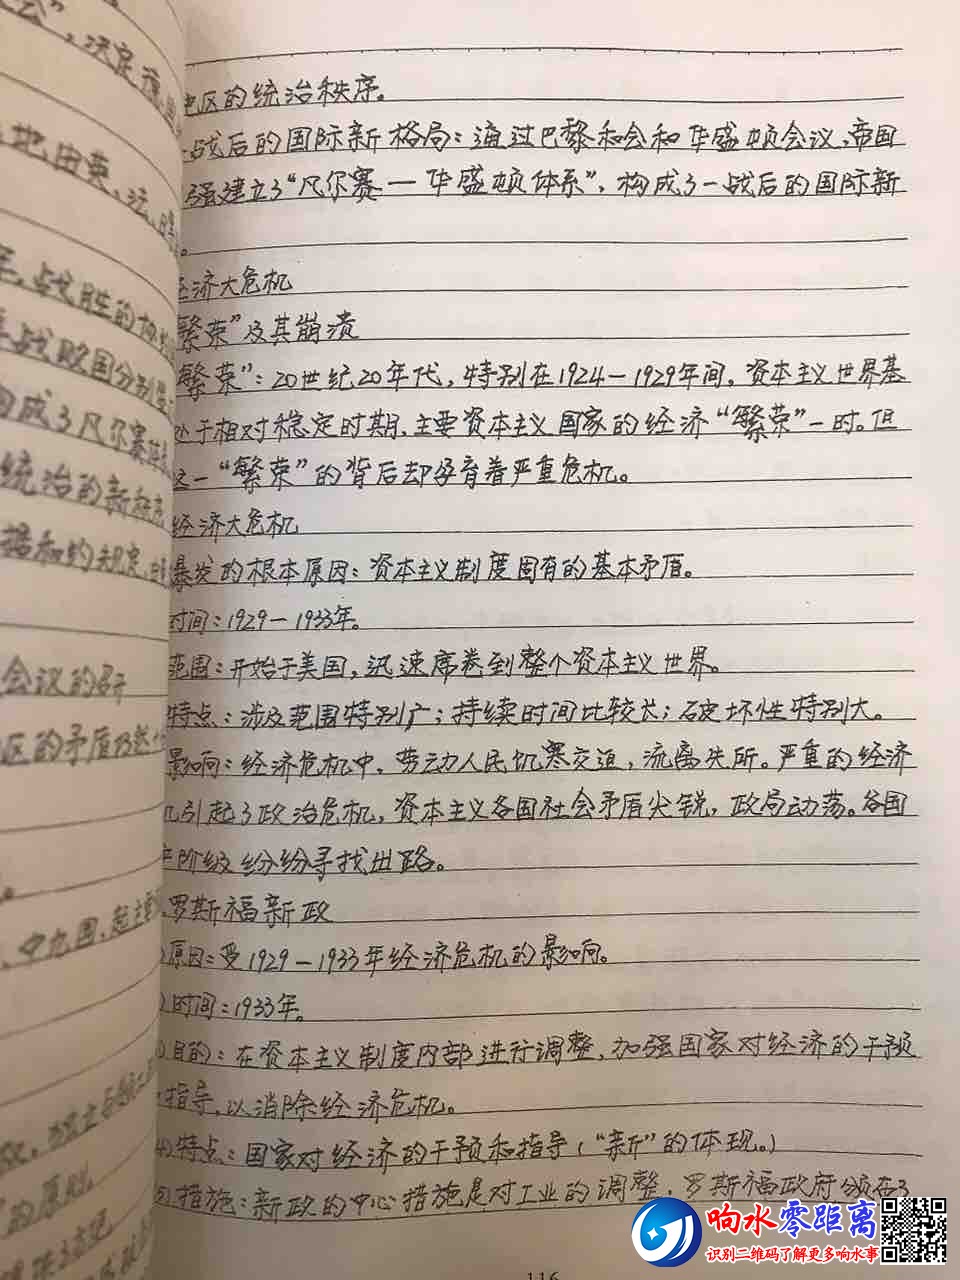 会”，决定
地，由英、法、
战胜的协约
战败国分别
构成了凡尔赛体系
统治的新秩序
据和约规定，
会议的召开
区的矛盾
、中九国，起主
的原则
区的统治秩序。
战后的国际新格局：通过巴黎和会和华盛顿会议，帝国
强建立了“凡尔赛—华盛顿体系”，构成了一战后的国际新
。
经济大危机
繁荣”及其崩溃
繁荣”：20世纪20年代，特别在1924—1929年间，资本主义世界基
处于相对稳定时期，主要资本主义国家的经济“繁荣”一时。但
这一“繁荣”的背后却孕育着严重危机。
经济大危机
暴发的根本原因：资本主义制度固有的基本矛盾。
时间：1929—1933年。
范围：开始于美国，迅速席卷到整个资本主义世界。
特点：涉及范围特别广；持续时间比较长；破坏性特别大。
影响：经济危机中，劳动人民饥寒交迫，流离失所。严重的经济
机引起了政治危机，资本主义各国社会矛盾尖锐，政局动荡。各国
阶级纷纷寻找出路。
罗斯福新政
原因：受1929—1933年经济危机的影响。
时间：1933年。
目的：在资本主义制度内部进行调整，加强国家对经济的干预
指导，以消除经济危机。
(4)特点：国家对经济的干预和指导（“新”的体现。）
措施：新政的中心措施是对工业的调整，罗斯福政府颁布了
116
响水零距离
识别二维码了解更多响水事